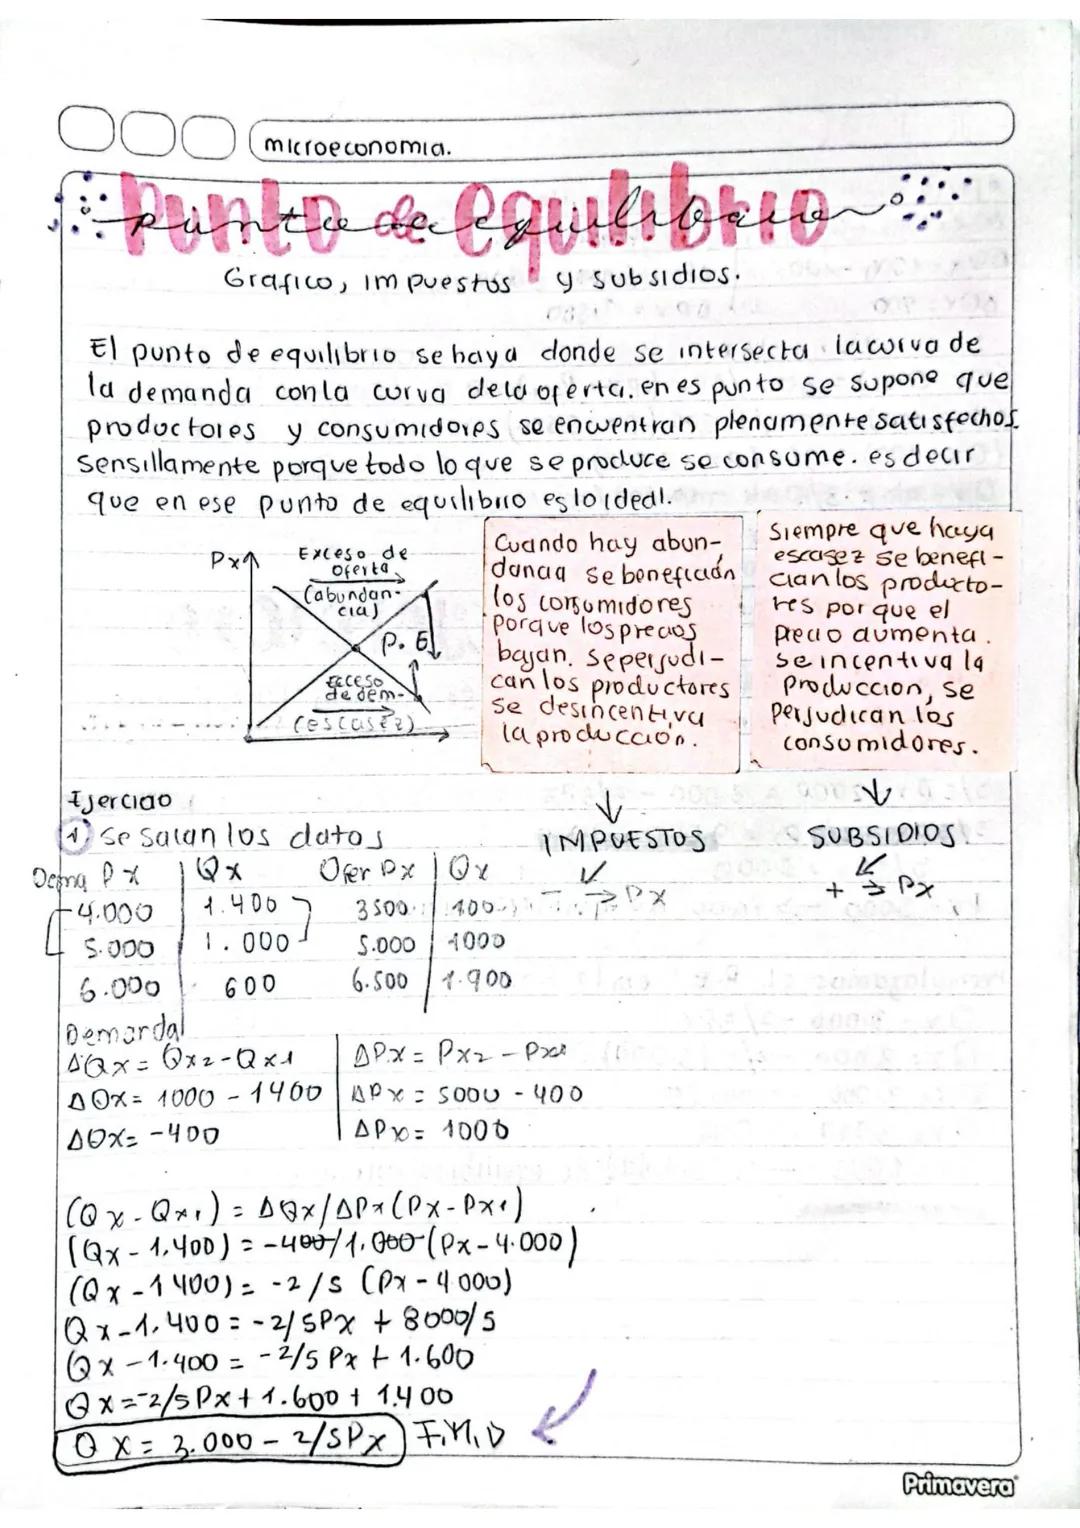 microeconomia.
Punto de equilibrio
Grafico, impuestos y subsidios.
El punto de equilibrio se haya donde se intersecta la curva de
la demanda con la curva dela oferta. en es punto se supone que
productores y consumidores se encuentran plenamente satisfechos
sensillamente porque todo lo que se produce se consume. es decir
que en ese punto de equilibrio es lo ideal.
Px
Exceso de
oferta
(abundan-
cia)
P. E
Exceso
de dem-
(escasez)
Cuando hay abun-
dancia se benefician
los consumidores
porque los precios
bajan. Se perjudi-
can los productores
se desincentiva
la producción.
Siempre que haya
escasez se benefi-
cian los producto-
res por que el
precio aumenta.
se incentiva la
Producción, se
perjudican los
consumidores.
IMPUESTOS
- → Px
SUBSIDIOS
+ → Px
Ejercicio
1) se sacan los datos
Dema Px | Qx Ofer Px | Qx
4.000 1.400 3500 100
5.000 1.000 5.000 1000
6.000 600 6.500 1.900
Demanda
ΔQx = Qx2 - Qx1 ΔPx = Px2 - Px1
ΔQx = 1000 - 1400 ΔPx = 5000 - 400
ΔQx = -400 ΔPx = 1000
(Qx - Qx1) = ΔQx/ΔPx (Px - Px1)
(Qx - 1.400) = -400/1.000 (Px - 4.000)
(Qx - 1400) = -2/5 (Px - 4000)
Qx - 1.400 = -2/5Px + 8000/5
Qx - 1.400 = -2/5 Px + 1.600
Qx = -2/5Px + 1.600 + 1.400
Qx = 3.000 - 2/5Px F.M.D
Primavera